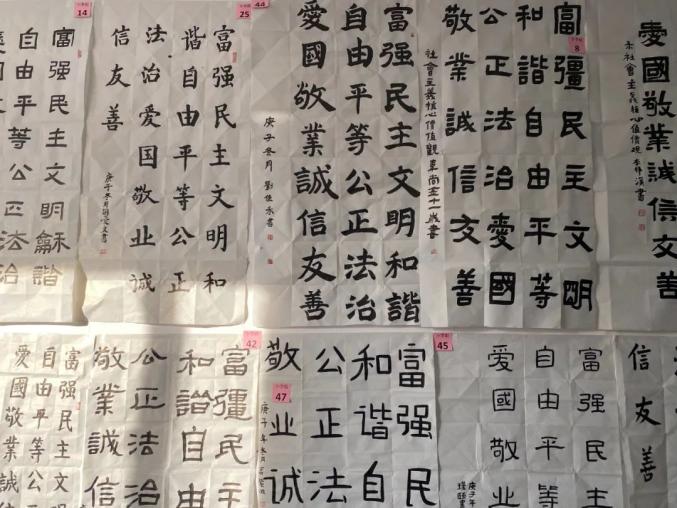 14
富强民主文明龢諧
自由平等公正法治
25
富强民主文明和
諧自由平等公正
法治爱国敬业诚
信友善
44
富强民主文明和諧
自由平等公正法治
愛國敬業誠信友善
庚子冬月
8
富彊民主文明
和諧自由平等
公正法治愛國
敬業誠信友善
社會主義核心價值觀
愛國敬業誠信友善
社會主義核心價值觀
富强民主文明
自由平等公正
愛國敬業誠信
42
富彊民主
和諧自由
公正法治
敬業誠信
47
富强民
和谐自
公正法
敬业诚
45
富强民主
自由平等
愛國敬业
庚子年
信友善